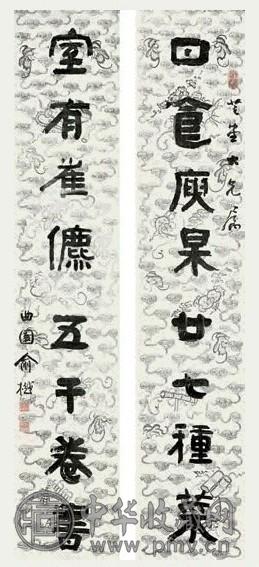 大兄屬
日食庾杲廿七種菜
室有崔儦五千卷書
曲園俞樾
中华收藏网
www.pmv.cn